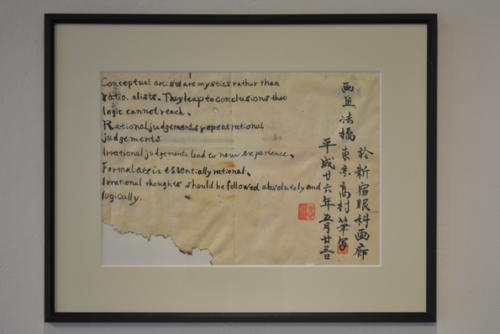 Conceptual artists are mystics rather than
ratio alists. They leap to conclusions that
logic cannot reach.
Rational judgements repeat rational
judgements.
Irrational judgements lead to new experience.
Formal art is essentially rational.
Irrational thoughts should be followed absolutely and
logically.
於新宿眼科画廊
法橋東京高村筆写
平成廿六年五月廿三日